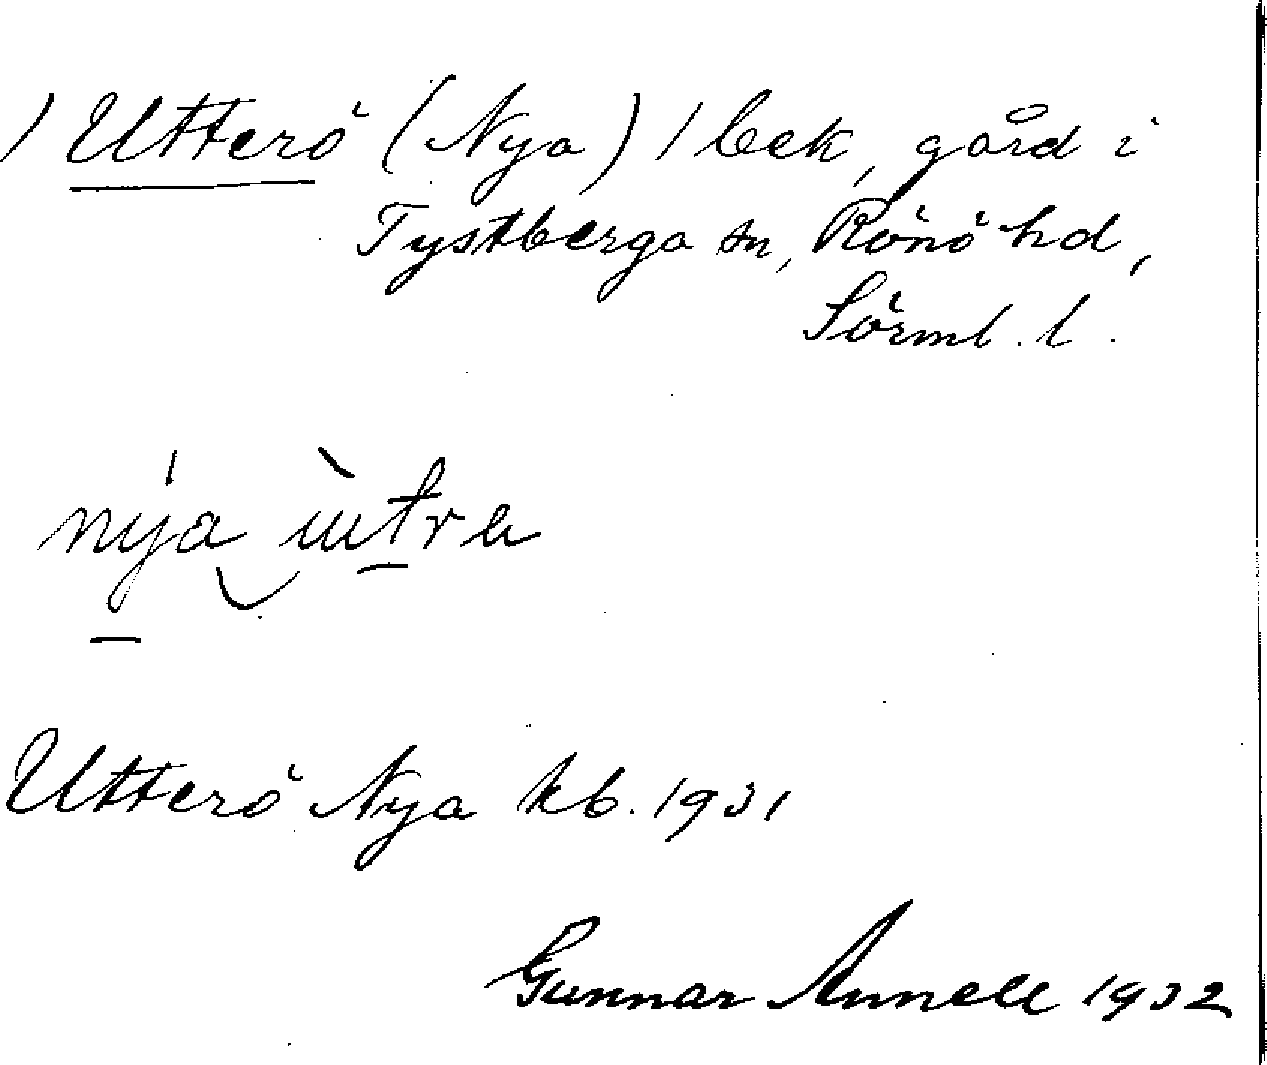 / Utterö (Nya) / bek, gård i
Tystberga sn, Rönö hd,
Sörml. l.
nya utra
Utterö Nya kb. 1931
Gunnar Annell 1932